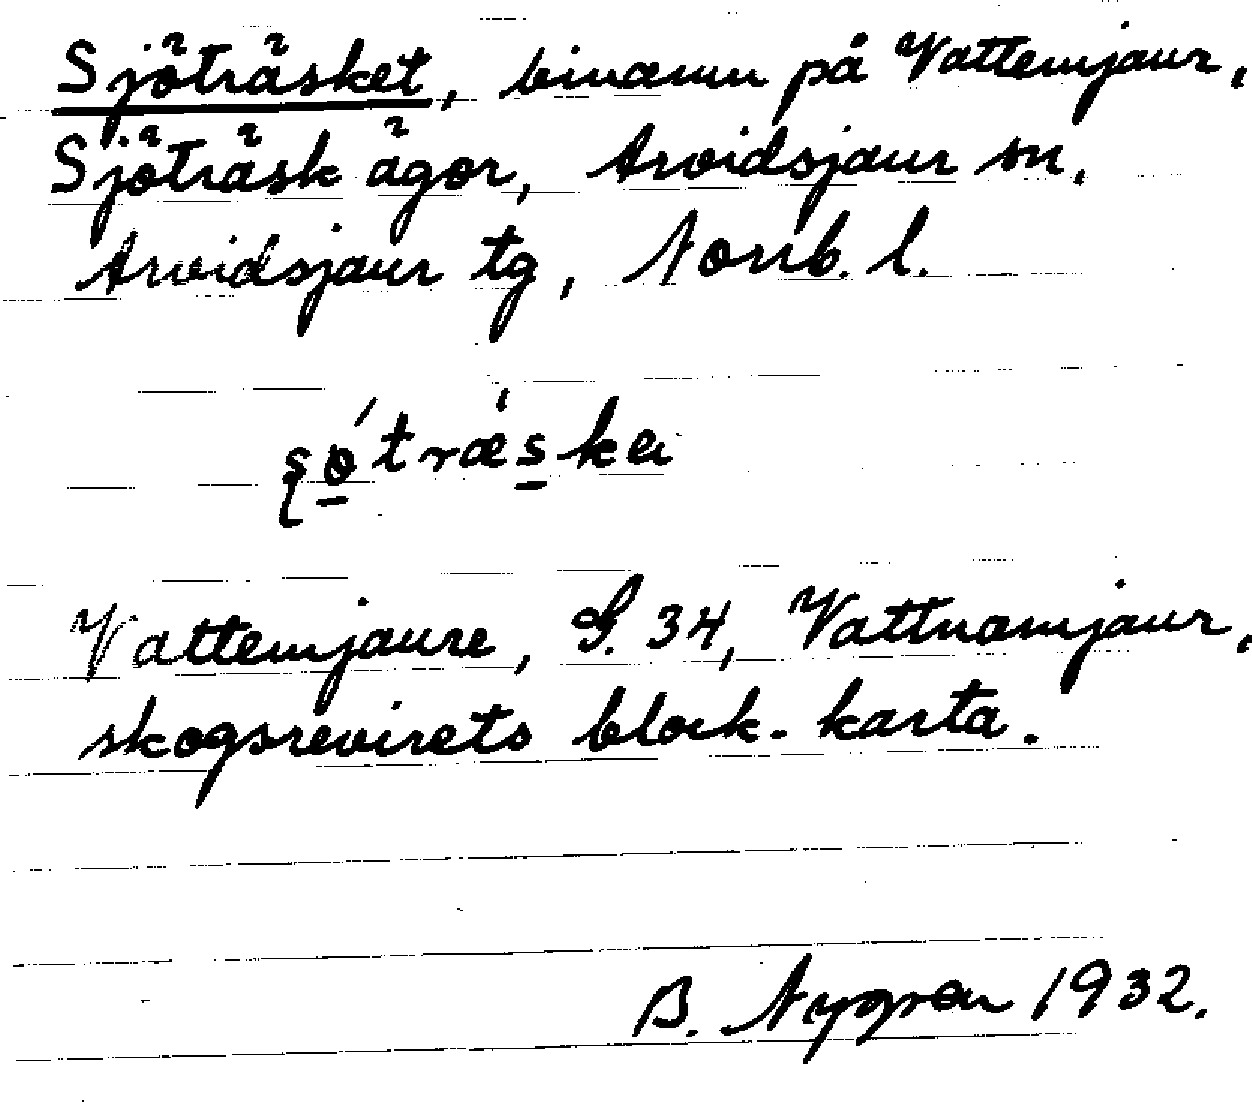 Sjöträsket, binamn på Vattemjaur,
Sjöträsk ägor, Arvidsjaur sn.
Arvidsjaur tg, Norrb. l.
Vattemjaure, G. 34, Vattnamjaur,
skogsrevirets block-karta.
B. Nygren 1932.